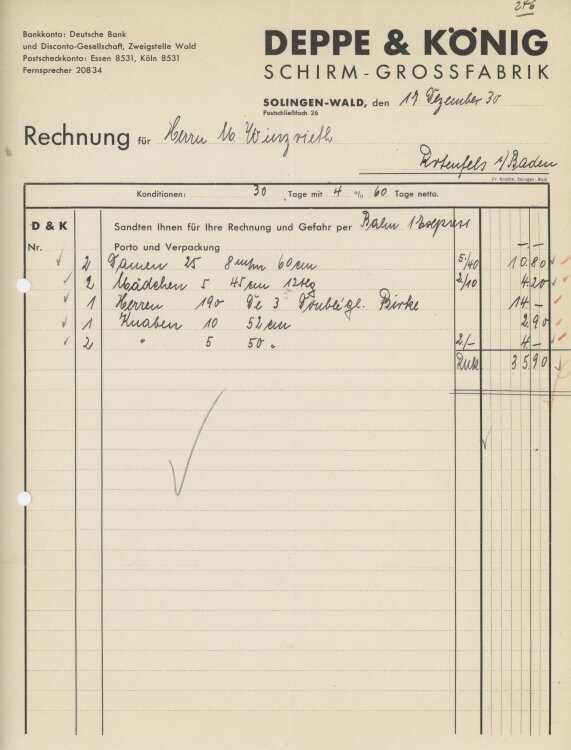 246
Bankkonto: Deutsche Bank
und Disconto-Gesellschaft, Zweigstelle Wald
Postscheckkonto: Essen 8531, Köln 8531
Fernsprecher 20834
DEPPE & KÖNIG
SCHIRM-GROSSFABRIK
SOLINGEN-WALD, den 17 Dezember 30
Postschließfach 26
Rechnung für Herrn
Rotenfels i/Baden
Fr. Krache, Solingen-Wald
Konditionen: 30 Tage mit 4 % 60 Tage netto.
D & K Sandten Ihnen für Ihre Rechnung und Gefahr per Bahn 1 Express
Nr. Porto und Verpackung -.-
2 Damen 25 8 m/m 60 cm 5/40 10.80
2 Mädchen 5 45 cm 12tlg 2/10 4.20
1 Herren 190 3 Doublégl. Birke 14.-
1 Knaben 10 52 cm 2.90
2 " 5 50 " 2/- 4.-
35.90